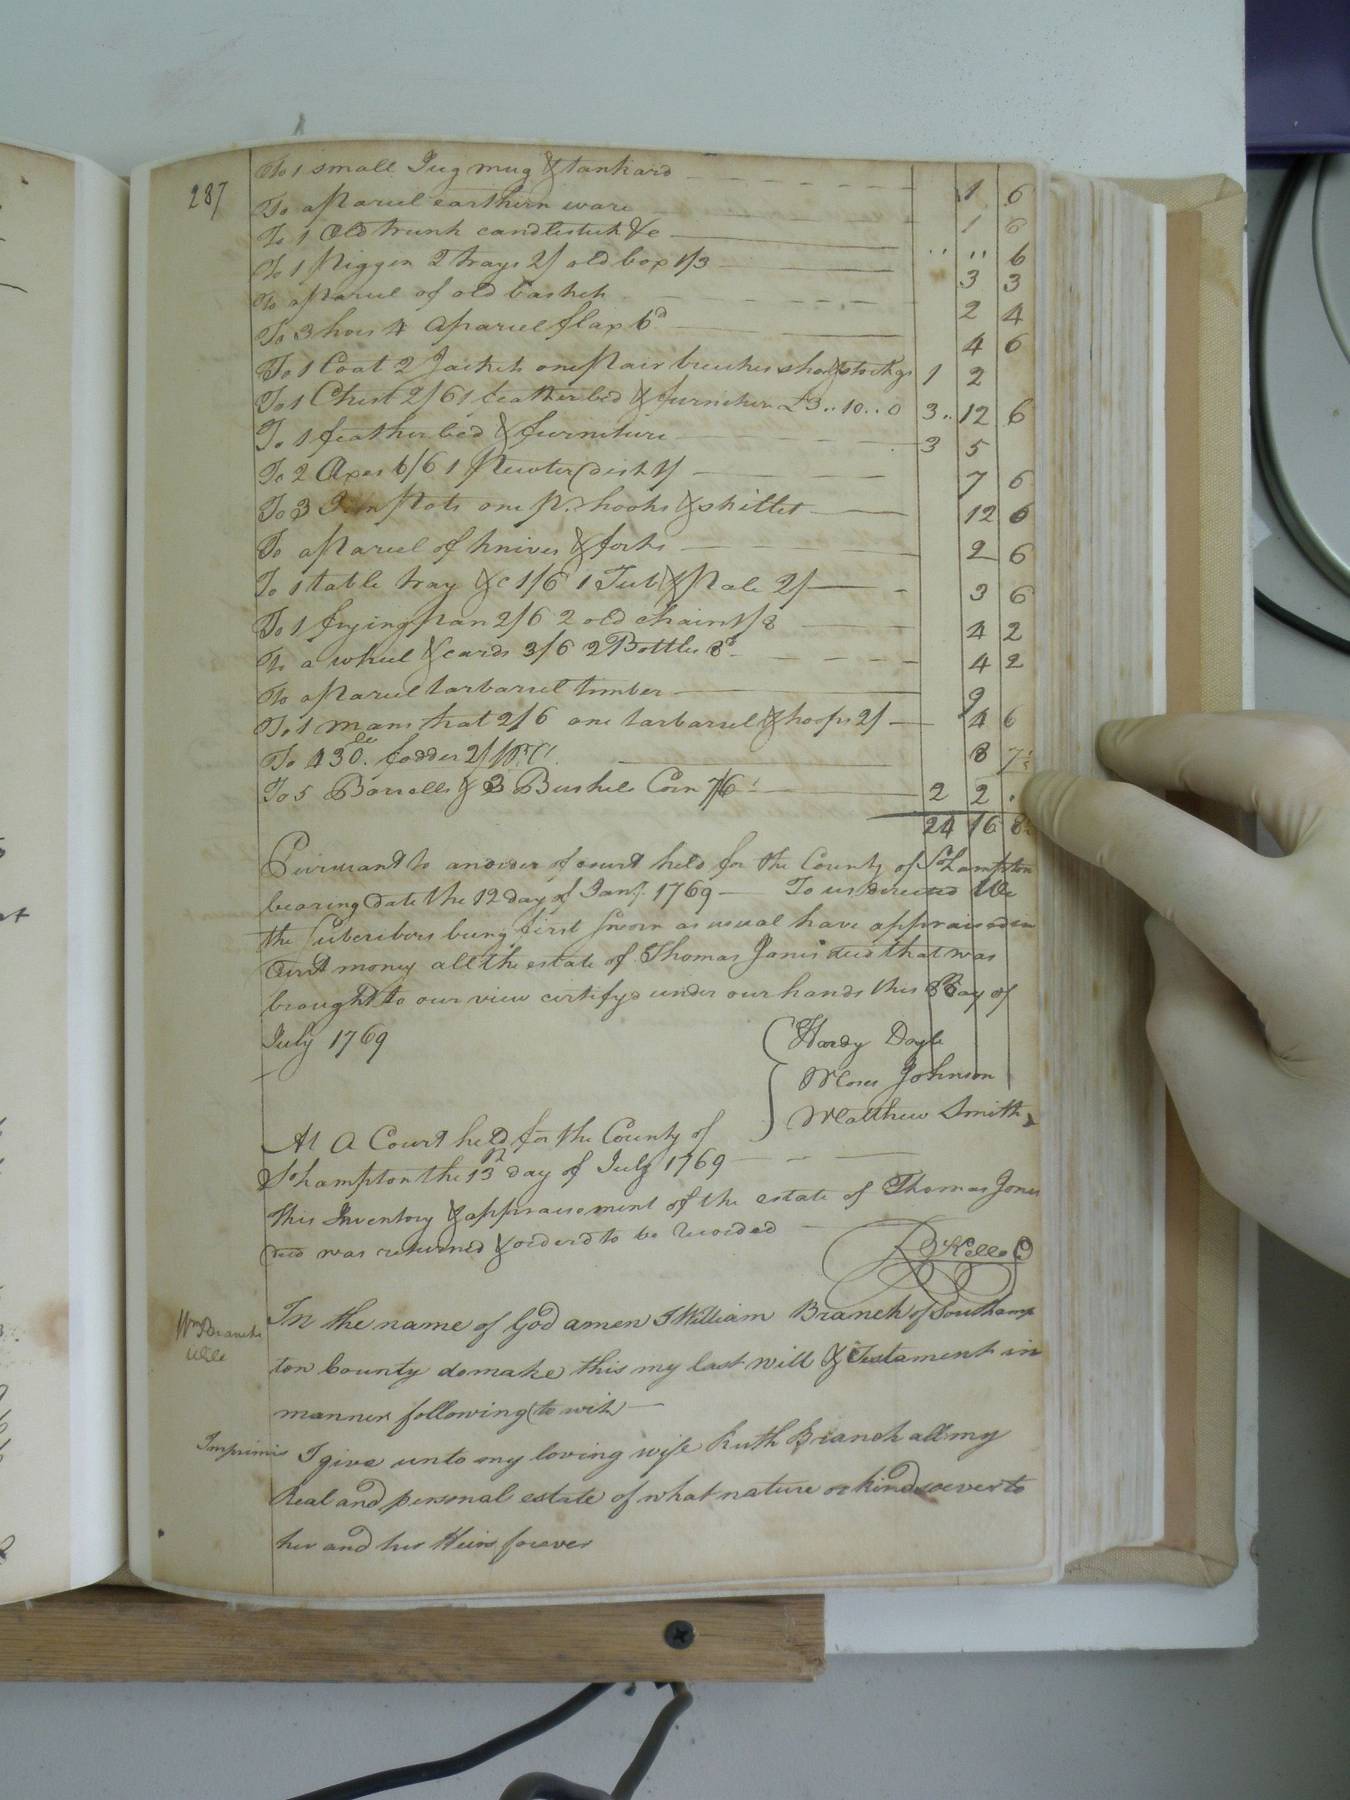 287
To 1 small Jug mug & tankard 1 6
To a Parcel earthern ware 1 6
To 1 Old trunk candlestick &c " " 6
To 1 Piggen 2 trays 2/ old box 1/3 3 3
To a Parcel of old baskets 2 4
To 3 hoes 4 a Parcel flax 6d 4 6
To 1 Coat 2 Jackets one Pair breeches shoes & stockgs 1 2
To 1 Chest 2/6 1 feather bed & furniture £3..10..0 3.. 12 6
To 1 feather bed & furniture 3 5
To 2 Axes 6/6 1 Pewter dish 1/ 7 6
To 3 Iron Pots one Pr. hooks & skillet 12 6
To a Parcel of knives & forks 2 6
To 1 table tray &c 1/6 1 Tub & Pale 2/ 3 6
To 1 frying Pan 2/6 2 old chairs 1/8 4 2
To a wheel & cards 3/6 2 Bottles 8d 4 2
To a Parcel tarbarrel timber 9
To 1 mans hat 2/6 one tarbarrel & hoops 2/ 4 6
To 430 fodder 2/ 8 7
To 5 Barrells & 3 Bushels Corn 7/6 2 2
24 16 8
Pursuant to an order of court held for the County of So.hampton
bearing date the 12 day of Jany. 1769 To us directed We
the Subcribers being first sworn as usual have appraised in
Curt money all the estate of Thomas Jones decd that was
brought to our view certifyd under our hands this 8 Day of
July 1769
Hardy Doyle
Moses Johnson
Matthew Smith
At A Court held for the County of
So.hampton the 13th day of July 1769
This Inventory & appraisement of the estate of Thomas Jones
decd was returned & orderd to be Recorded
R Kello C
Wm Branchs
Will
In the name of God amen I William Branch of Southamp
ton County do make this my last will & Testament in
manner following (to wit)
Imprimis I give unto my loving wife Ruth Branch all my
Real and personal estate of what nature or kind soever to
her and her Heirs forever